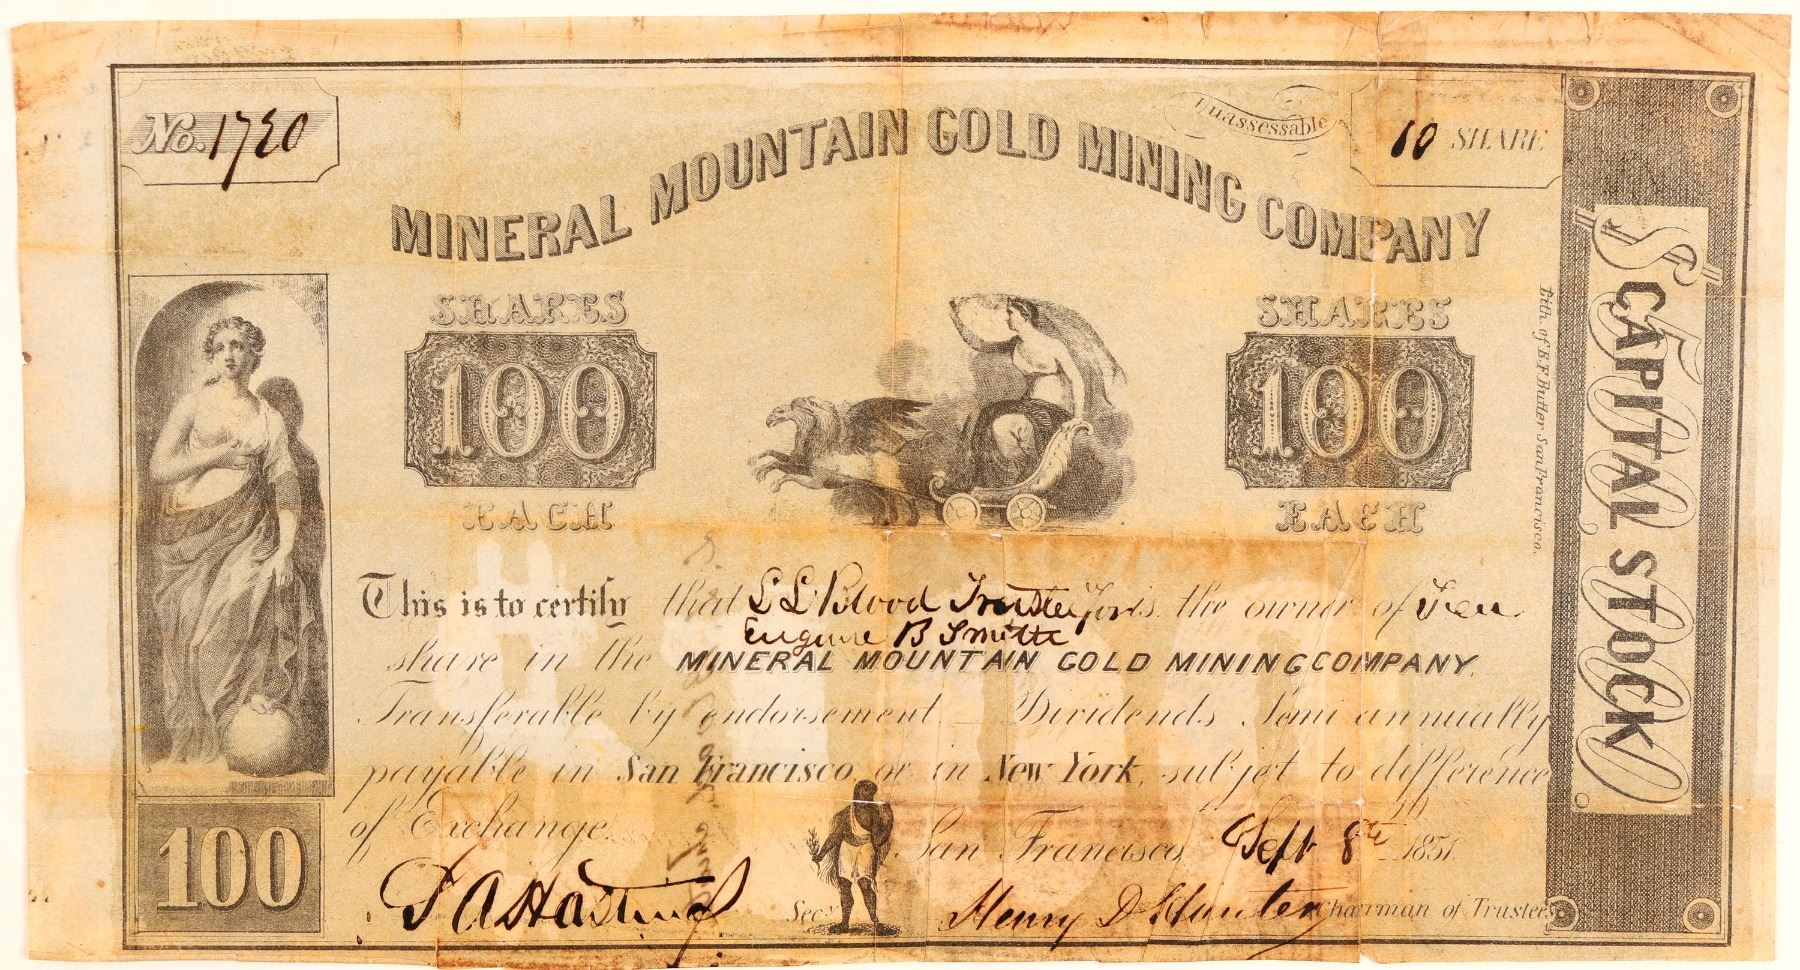 No. 1720
Unassessable
10 SHARE
MINERAL MOUNTAIN GOLD MINING COMPANY
SHARES
100
EACH
SHARES
100
EACH
This is to certify that L L Blood Trustee for is the owner of Ten
Eugene B Smith
share in the MINERAL MOUNTAIN GOLD MINING COMPANY.
Transferable by endorsement — Dividends Semi annually
payable in San Francisco or in New York, subjet to difference
of Exchange.
San Francisco Sept 8th 1851.
100
Secy
Henry D Hunter Chairman of Trusters
Lith. of B.F. Butler San Francisco.
CAPITAL STOCK